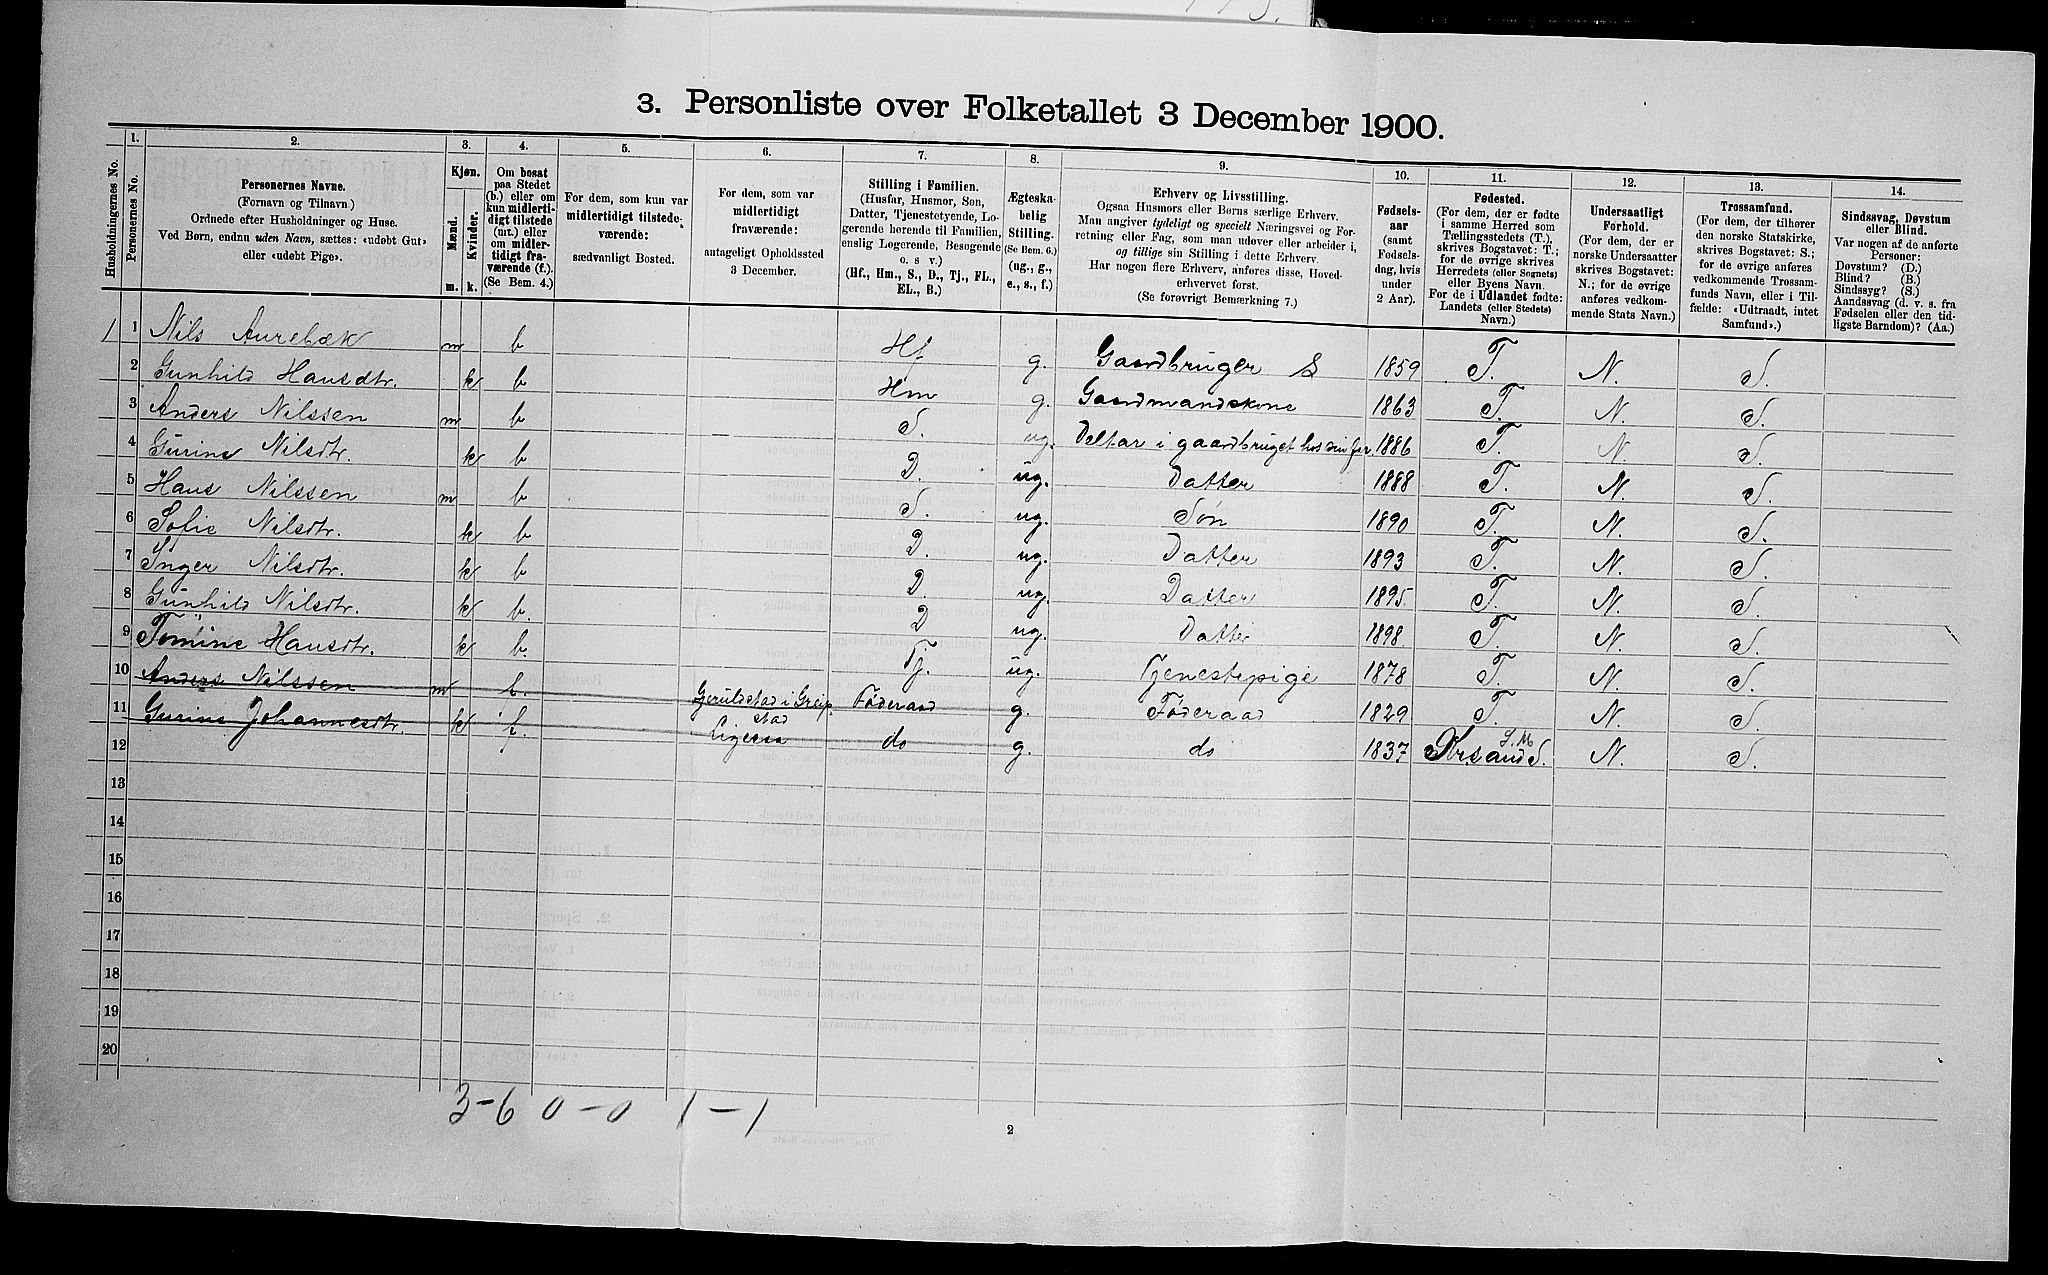 3. Personliste over Folketallet 3 December 1900.
Husholdningernes No.
1.
Personernes No.
2.
Personernes Navne.
(Fornavn og Tilnavn.)
Ordnede efter Husholdninger og Huse.
Ved Børn, endnu uden Navn, sættes: «udøbt Gut»
eller «udøbt Pige».
3.
Kjøn.
Mænd.
Kvinder.
m.
k.
4.
Om bosat
paa Stedet
(b.) eller om
kun midlerti-
digt tilstede
(mt.) eller
om midler-
tidigt fra-
værende (f.).
(Se Bem. 4.)
5.
For dem, som kun var
midlertidigt tilstede-
værende:
sædvanligt Bosted.
6.
For dem, som var
midlertidigt
fraværende:
antageligt Opholdssted
3 December.
7.
Stilling i Familien.
(Husfar, Husmor, Søn,
Datter, Tjenestetyende, Lo-
gerende hørende til Familien,
enslig Logerende, Besøgende
o. s v.)
(Hf., Hm., S., D., Tj., FL.,
EL., B.)
8.
Ægteska-
belig
Stilling.
(Se Bem. 6.)
(ug., g.,
e., s., f.)
9.
Erhverv og Livsstilling.
Ogsaa Husmors eller Børns særlige Erhverv.
Man angiver tydeligt og specielt Næringsvei og For-
retning eller Fag, som man udøver eller arbeider i,
og tillige sin Stilling i dette Erhverv.
Har nogen flere Erhverv, anføres disse, Hoved-
erhvervet først.
(Se forøvrigt Bemærkning 7.)
10.
Fødsels-
aar
(samt
Fødsels-
dag, hvis
under
2 Aar).
11.
Fødested.
(For dem, der er fødte
i samme Herred som
Tællingsstedets (T.),
skrives Bogstavet: T.;
for de øvrige skrives
Herredets (eller Sognets)
eller Byens Navn.
For de i Udlandet fødte:
Landets (eller Stedets)
Navn.)
12.
Undersaatligt
Forhold.
(For dem, der er
norske Undersaatter
skrives Bogstavet:
N.; for de øvrige
anføres vedkom-
mende Stats Navn.)
13.
Trossamfund.
(For dem, der tilhører
den norske Statskirke,
skrives Bogstavet: S.;
for de øvrige anføres
vedkommende Trossam-
funds Navn, eller i Til-
fælde: «Udtraadt, intet
Samfund».)
14.
Sindssvag, Døvstum
eller Blind.
Var nogen af de anførte
Personer:
Døvstum? (D.)
Blind? (B.)
Sindssyg? (S.)
Aandssvag (d. v. s. fra
Fødselen eller den tid-
ligste Barndom)? (Aa.)
1 1 Nils Aurebæk m b Hf g. Gaardbruger S 1859 T. N. S.
2 Gunhild Hansdtr. k b Hm g. Gaardmandskone 1863 T. N. S.
3 Anders Nilssen m b S. ug. Deltar i gaardbruget hos sin far 1886 T. N. S.
4 Gurine Nilsdtr. k b D. ug. Datter 1888 T. N. S.
5 Hans Nilssen m b S. ug. Søn 1890 T. N. S.
6 Sofie Nilsdtr. k b D. ug. Datter 1893 T. N. S.
7 Inger Nilsdtr. k b D. ug. Datter 1895. T. N. S.
8 Gunhild Nilsdtr. k b. D ug. Datter 1898. T. N. S.
9 Tomine Hansdtr. k b. Tj. ug. Tjenestepige 1878 T. N. S.
10 Anders Nilssen m f. Gjeruldstad i Greip stad Føderaad g. Føderaad 1829 T. N. S.
11 Gurine Johannesdtr. k f. Ligesaa do g. do 1837 Kr.sand S. S.M N. S.
12
13
14
15
16
17
18
19
20
3-6 0-0 1-1
2